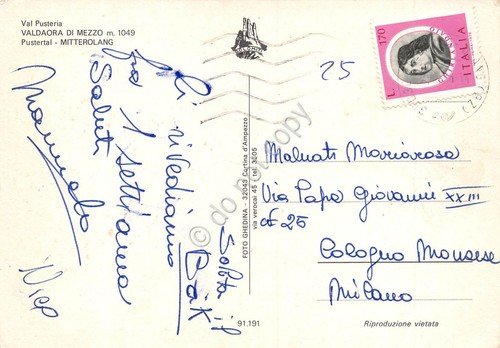 Val Pusteria
VALDAORA DI MEZZO m. 1049
Pustertal - MITTEROLANG
Ci rivediamo
fra 1 settimana
Saluti
Manuela
25
L. 170
ITALIA
Malnati Mariarosa
Via Papa Giovanni XXIII
N° 25
Cologno Monzese
Milano
FOTO GHEDINA - 32043 Cortina d'Ampezzo
via verocai 45 tel. 3205
do not copy
91.191
Riproduzione vietata